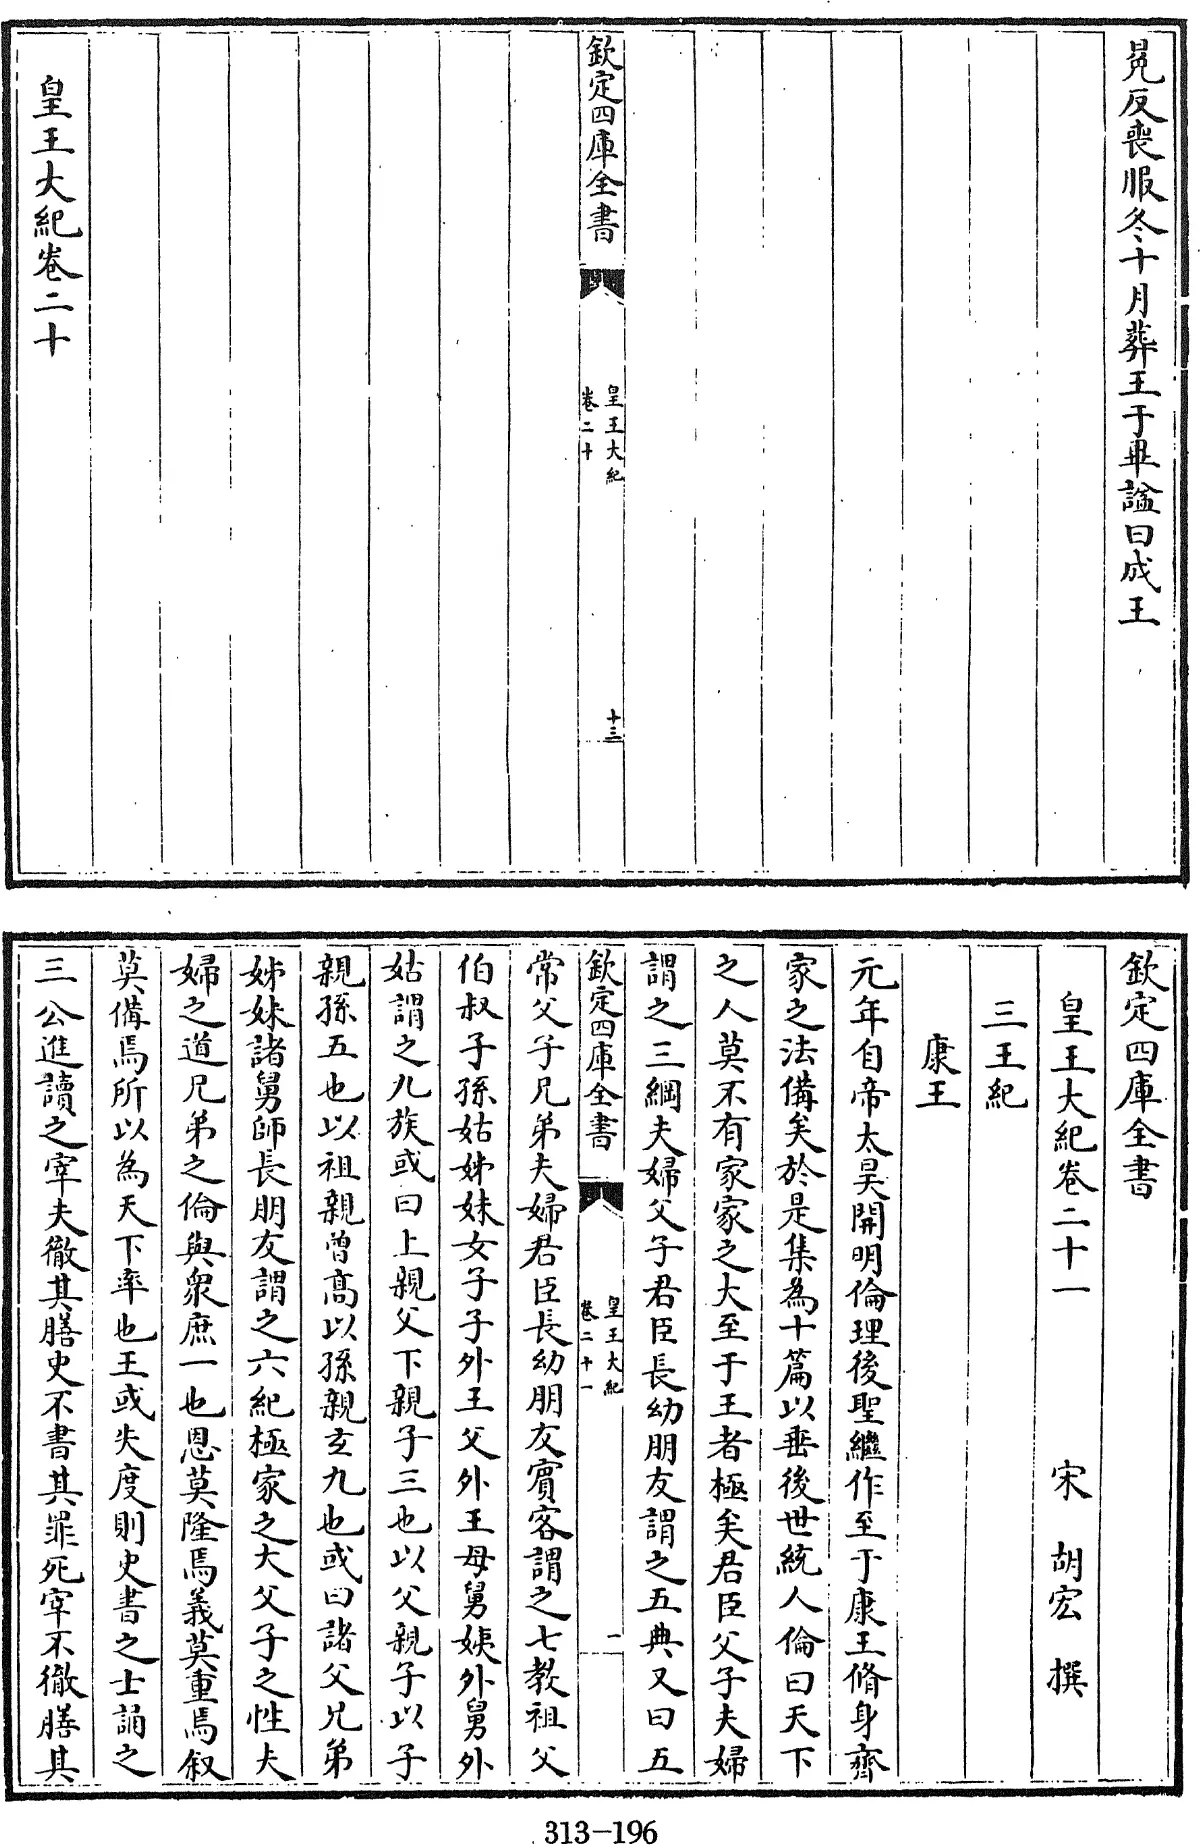 冕反喪服冬十月葬王于畢諡曰成王
欽定四庫全書
皇王大紀
卷二十
十三
皇王大紀卷二十
欽定四庫全書
皇王大紀卷二十一 宋 胡宏 撰
三王紀
康王
元年自帝太昊開明倫理後聖繼作至于康王脩身齊
家之法備矣於是集為十篇以垂後世統人倫曰天下
之人莫不有家家之大至于王者極矣君臣父子夫婦
謂之三綱夫婦父子君臣長幼朋友謂之五典又曰五
欽定四庫全書
皇王大紀
卷二十一
一
常父子兄弟夫婦君臣長幼朋友賓客謂之七教祖父
伯叔子孫姑姊妹女子子外王父外王母舅姨外舅外
姑謂之九族或曰上親父下親子三也以父親子以子
親孫五也以祖親曾高以孫親玄九也或曰諸父兄弟
姊妹諸舅師長朋友謂之六紀極家之大父子之性夫
婦之道兄弟之倫與衆庶一也恩莫隆焉義莫重焉叙
莫備焉所以為天下率也王或失度則史書之士誦之
三公進讀之宰夫徹其膳史不書其罪死宰不徹膳其
313-196